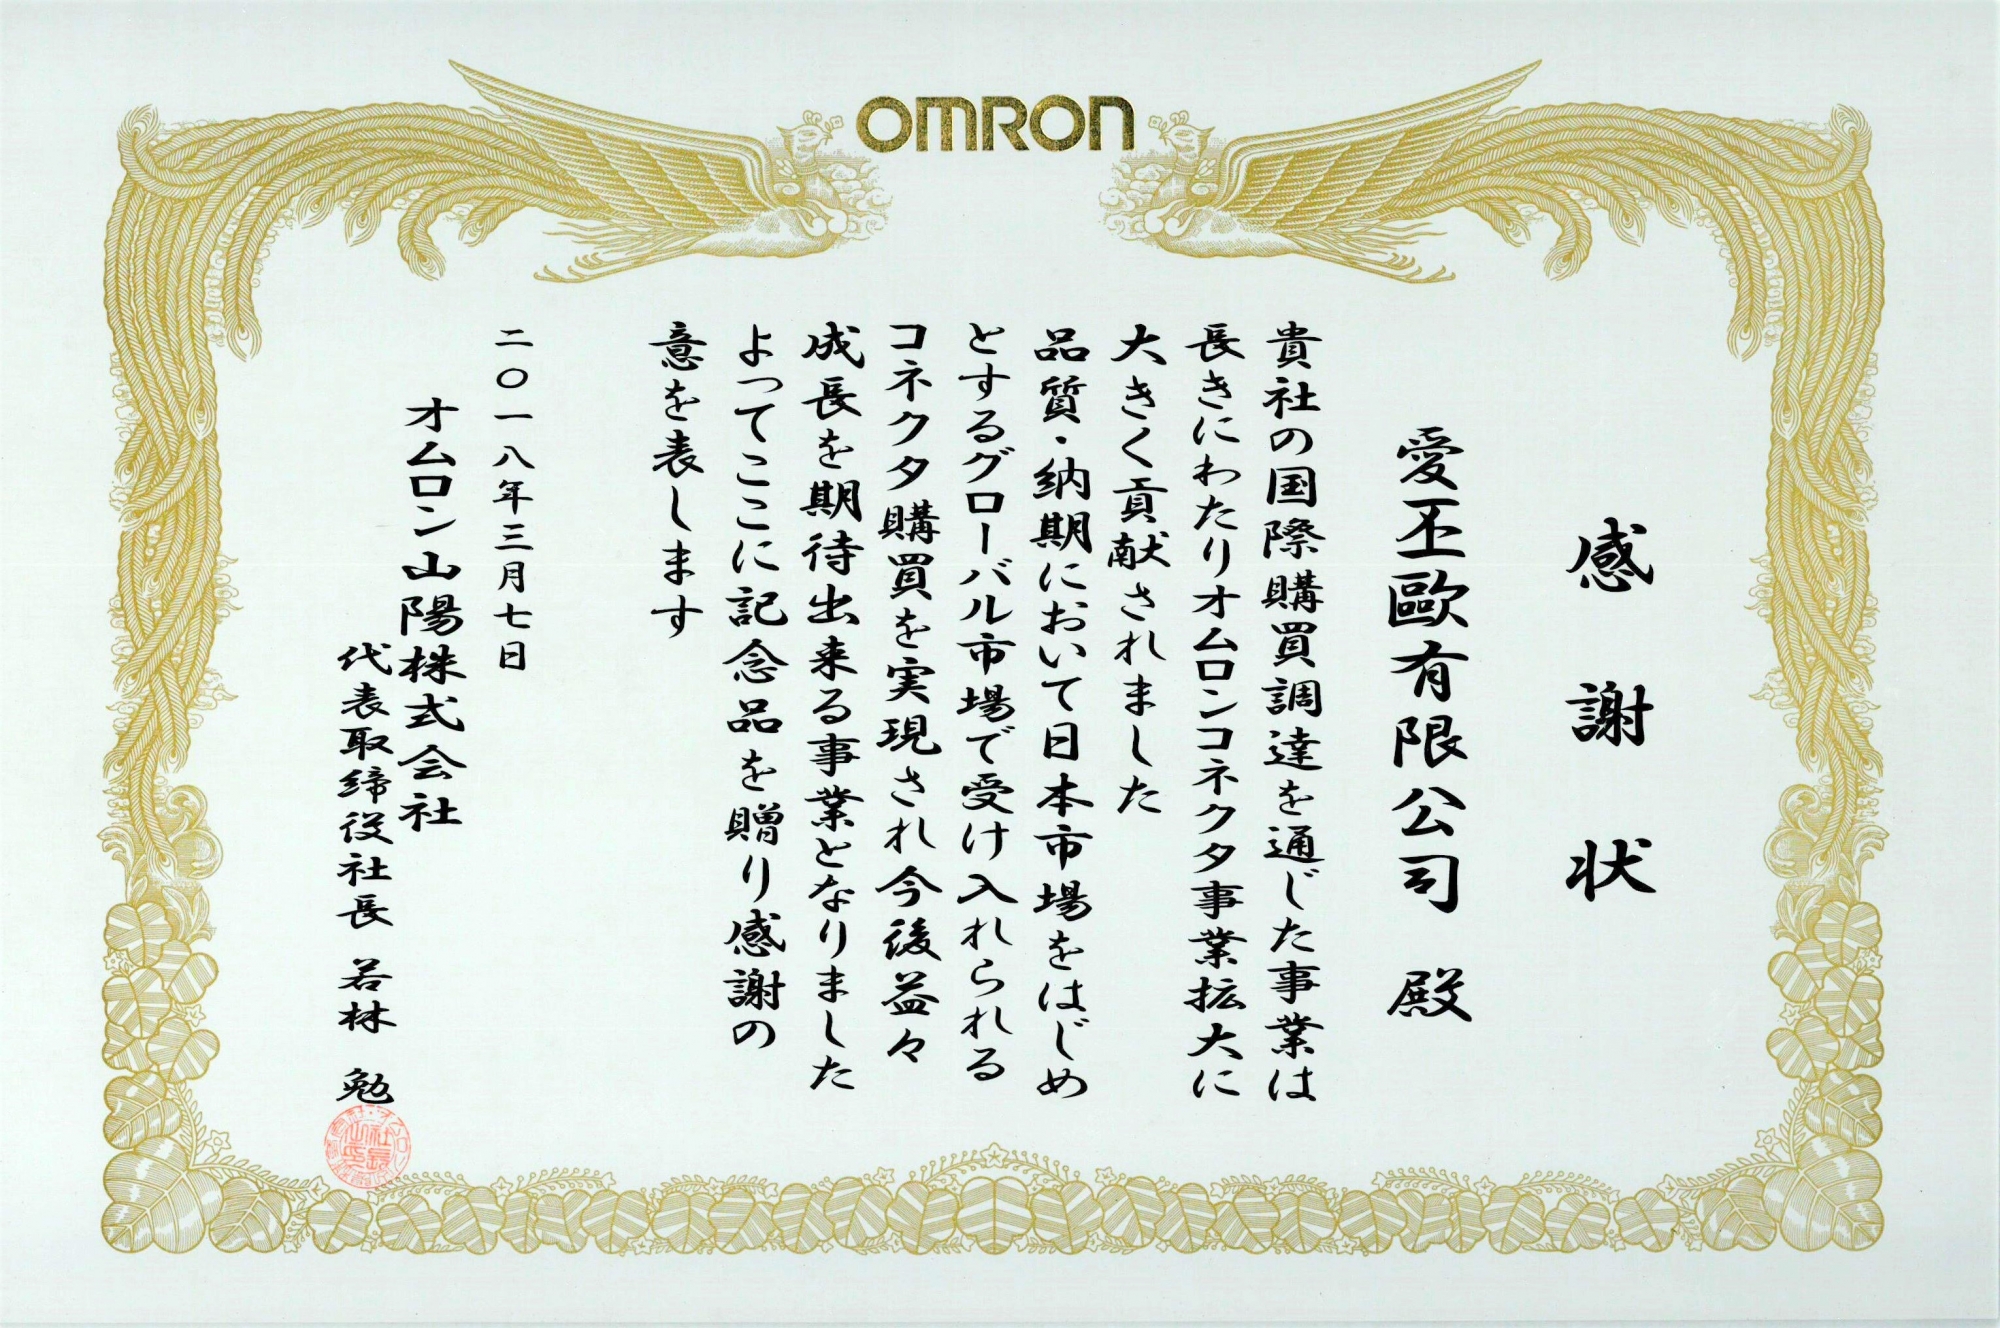 OMRON
感謝状
愛丕歐有限公司 殿
貴社の国際購買調達を通じた事業は
長きにわたりオムロンコネクタ事業拡大に
大きく貢献されました
品質・納期において日本市場をはじめ
とするグローバル市場で受け入れられる
コネクタ購買を実現され今後益々
成長を期待出来る事業となりました
よってここに記念品を贈り感謝の
意を表します
二〇一八年三月七日
オムロン山陽株式会社
代表取締役社長 若林 勉